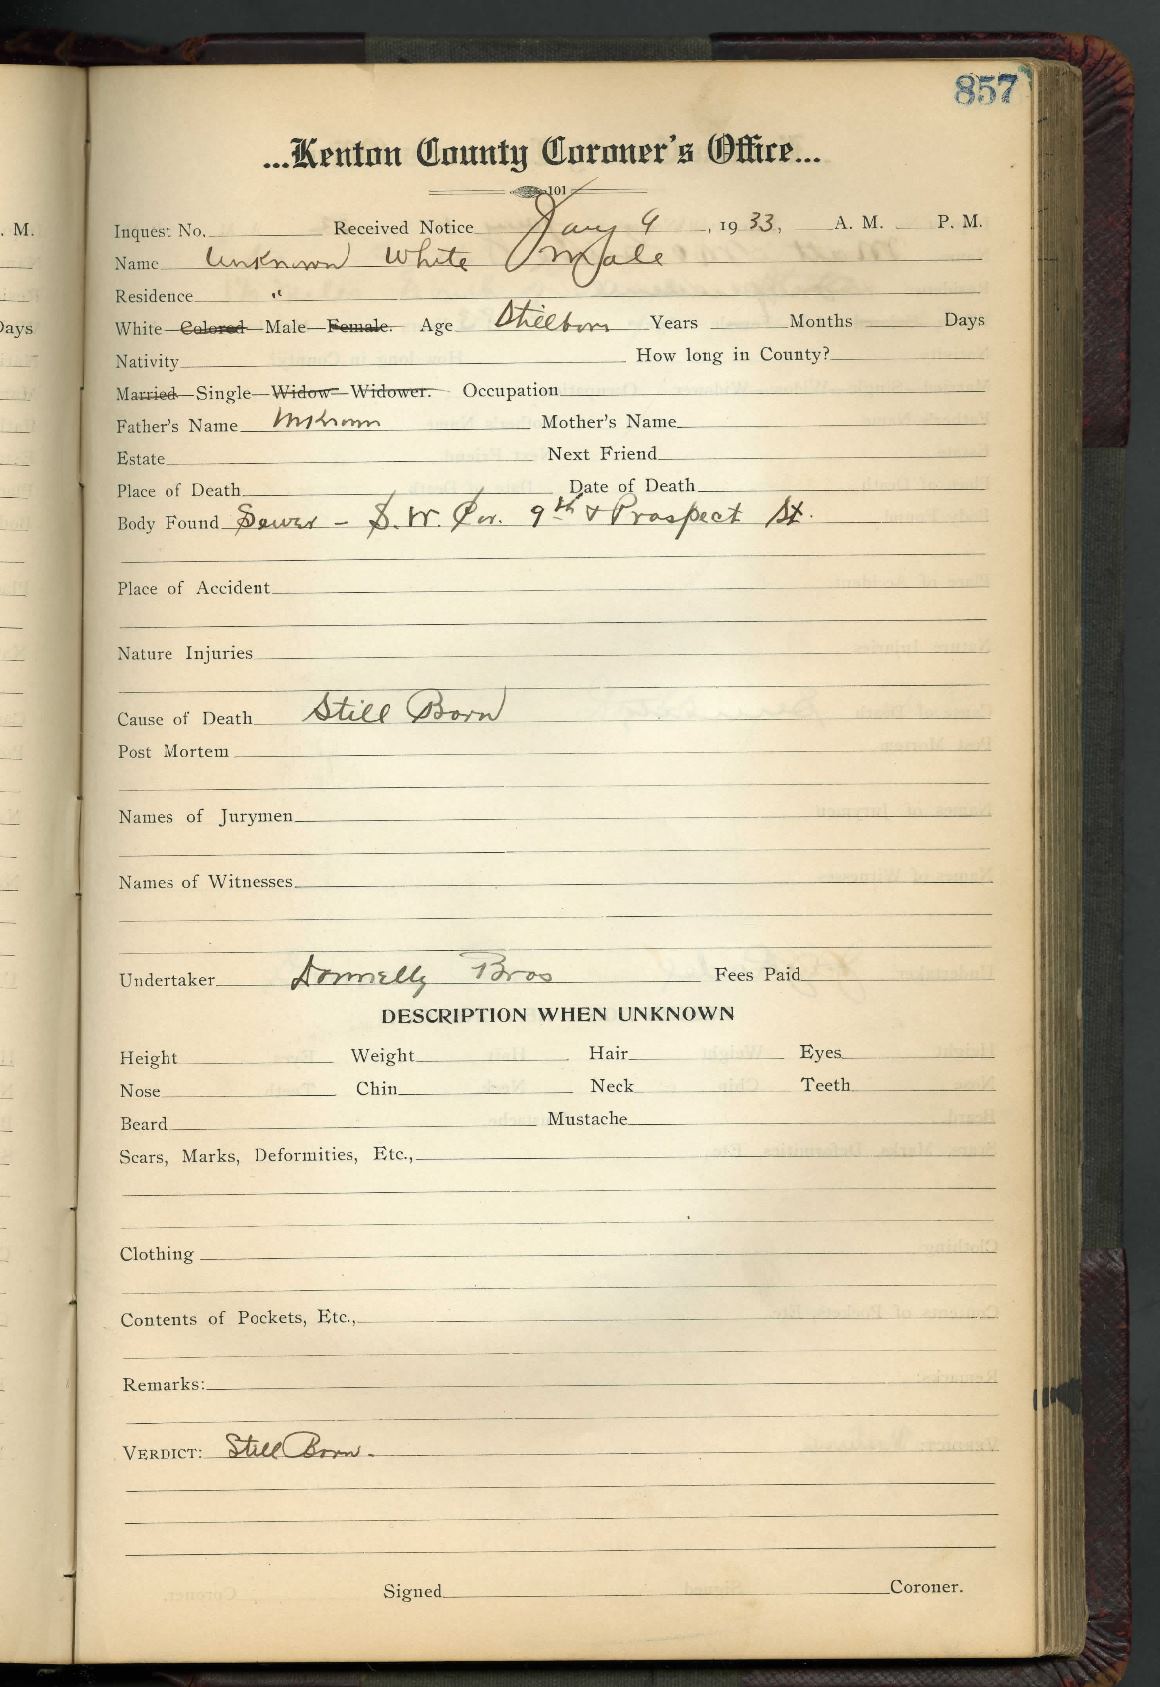 857
...Kenton County Coroner's Office...
101
Inquest No. Received Notice Jany 9, 1933, A. M. P. M.
Name Unknown White Male
Residence "
White Colored Male Female. Age Stillborn Years Months Days
Nativity How long in County?
Married Single Widow Widower. Occupation
Father's Name Unknown Mother's Name
Estate Next Friend
Place of Death Date of Death
Body Found Sewer - S. W. Cor. 9th & Prospect St.
Place of Accident
Nature Injuries
Cause of Death Still Born
Post Mortem
Names of Jurymen
Names of Witnesses
Undertaker Donnelly Bros Fees Paid
DESCRIPTION WHEN UNKNOWN
Height Weight Hair Eyes
Nose Chin Neck Teeth
Beard Mustache
Scars, Marks, Deformities, Etc.,
Clothing
Contents of Pockets, Etc.,
Remarks:
VERDICT: Still Born.
Signed Coroner.
. M.
Days